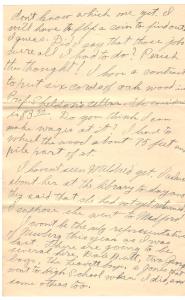 don't know which one yet. I
will have to flip a coin to find out
I guess. Did I say that those jobs
were all I had to do? Perish
the thought! I have a contract
to put six cords of oak wood in
Prof. cellar. The
is $3 Do you think I can
make wages at it? I have to
wheel the wood about 75 feet and
pile part of it.
I haven't seen Mildred yet. I asked
about her at the library to-day and
they said that she had not yet
I suppose she went to Medford.
I won't be the only representative
of Newberg in as I was
last. There are going to be
several here, Dale
boys, the boys, a Jones that
went to High School when I did, and
some others too.